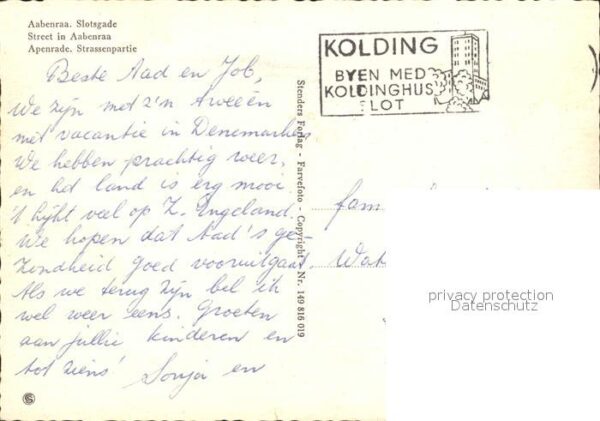 Aabenraa. Slotsgade
Street in Aabenraa
Apenrade. Strassenpartie
KOLDING
BYEN MED
KOLDINGHUS
SLOT
Beste Aad en Job,
We zijn met z'n tweeën
met vacantie in Denemarken
We hebben prachtig weer,
en het land is erg mooi
't lijkt veel op Z. Engeland.
We hopen dat Aad's ge-
zondheid goed vooruitgaat.
Als we terug zijn bel ik
wel weer eens. Groeten
aan jullie kinderen en
tot ziens! Sonja en
Stenders Forlag - Farvefoto - Copyright - Nr. 149 816 019
fam
Wat
privacy protection
Datenschutz